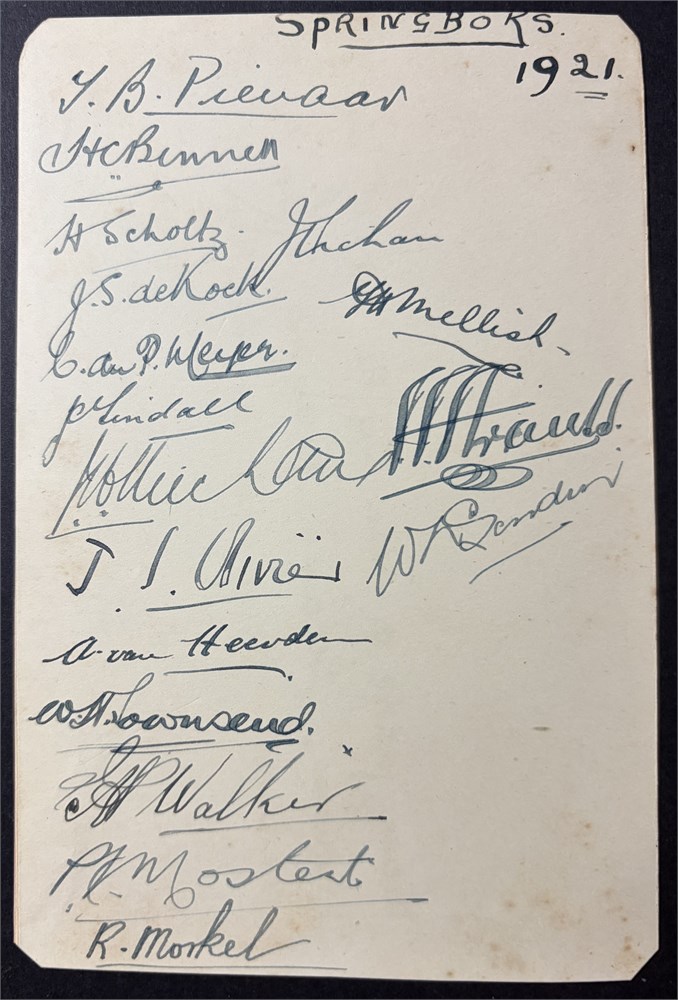 SPRINGBOKS.
1921.
T. B. Pienaar
H C Bennett
H Scholtz. J S de Kock.
F W Mellish
C. du P. Meyer.
P Lindall
J. S. Strauss.
J. S. Olivier
A. van Heerden
W. H. Townsend.
Walker
P J Mostert
R. Morkel